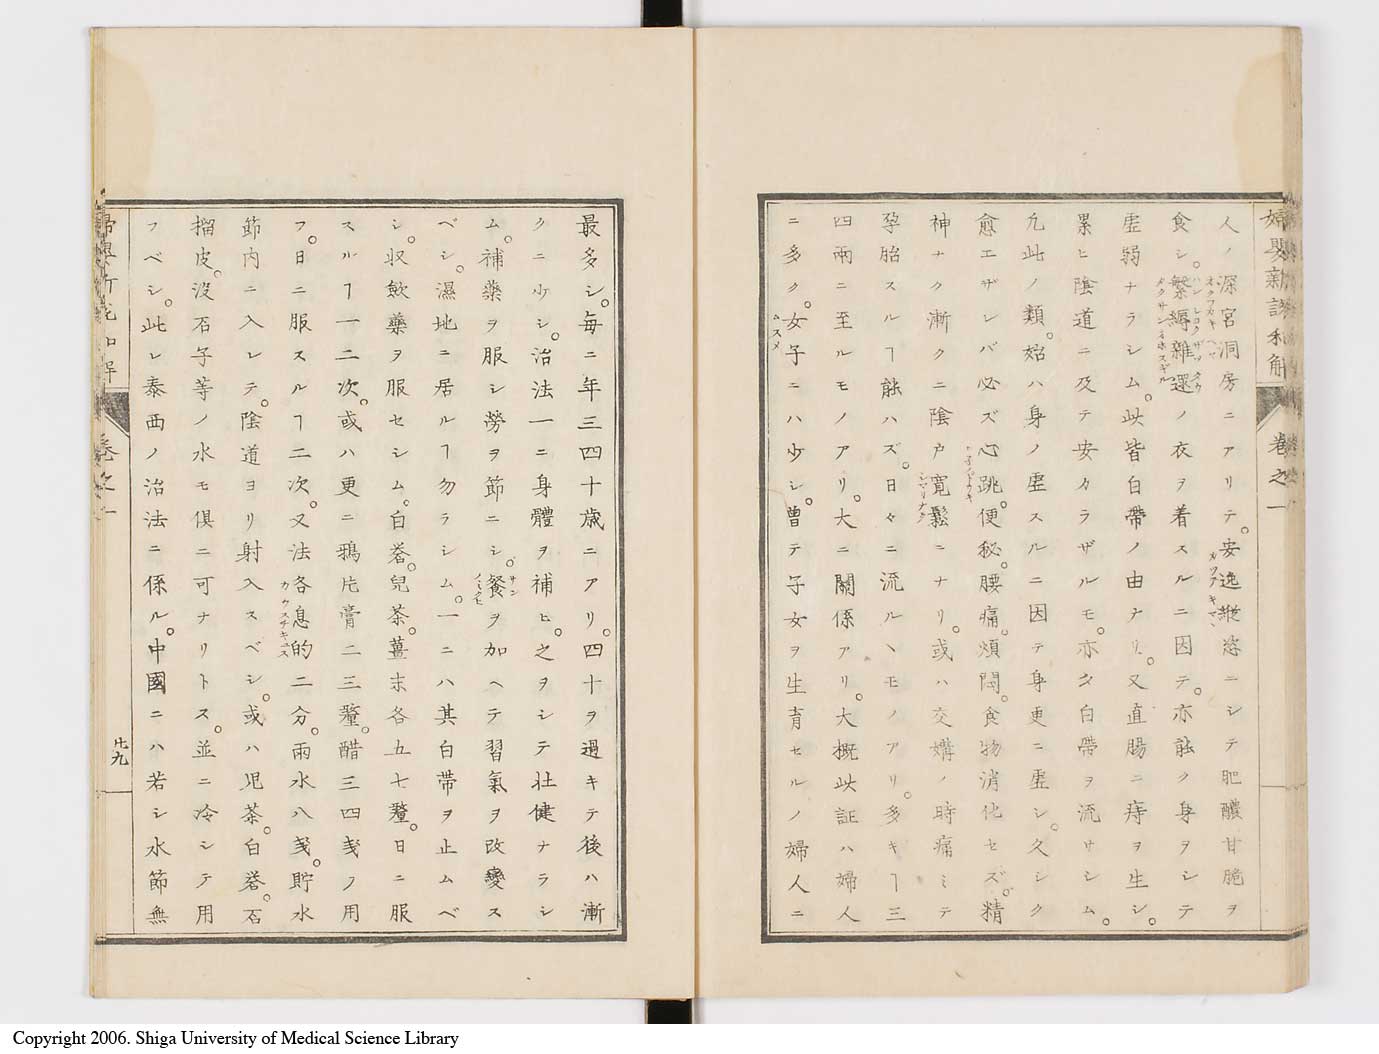 婦嬰新説和解
卷之一
人ノ深宮洞房ニアリテ。安逸縱恣ニシテ肥醲甘脆ヲ
オクフカキヘヤ
食シ。繁縟雜遝ノ衣ヲ着スルニ因テ。亦能ク身ヲシテ
ハンジヨクザツタウ
虚弱ナラシム。此皆白帶ノ由ナリ。又直腸ニ痔ヲ生シ。
累ヒ陰道ニ及テ安カラザルモ。亦タ白帶ヲ流サシム。
凡此ノ類。始ハ身ノ虚スルニ因テ身更ニ虚シ。久シク
愈エザレバ必ズ心跳。便秘。腰痛。煩悶。食物消化セズ。精
神ナク漸クニ陰戸寛鬆ニナリ。或ハ交媾ノ時痛ミテ
シマリナク
孕胎スルヿ能ハズ。日々ニ流ルヽモノアリ。多キヿ三
四兩ニ至ルモノアリ。大ニ關係アリ。大概此証ハ婦人
ニ多ク。女子ニハ少シ。曽テ子女ヲ生育セルノ婦人ニ
ムスメ
最多シ。毎ニ年三四十歳ニアリ。四十ヲ過キテ後ハ漸
クニ少シ。治法一ニ身體ヲ補ヒ。之ヲシテ壯健ナラシ
ム。補藥ヲ服シ勞ヲ節ニシ。餐ヲ加ヘテ習氣ヲ改變ス
サン
ノミクヒ
ベシ。濕地ニ居ルヿ勿ラシム。一ニハ其白帶ヲ止ムベ
シ。収斂藥ヲ服セシム。白礬。兒茶。薑末各五七釐。日ニ服
スルヿ一二次。或ハ更ニ鴉片膏二三釐。醋三四戔ヲ用
フ。日ニ服スルヿ二次。又法各息的二分。雨水八戔。貯水
カウスチキュス
節内ニ入レテ。陰道ヨリ射入スベシ。或ハ児茶。白礬。石
榴皮。没石子等ノ水モ俱ニ可ナリトス。並ニ冷シテ用
フベシ。此レ泰西ノ治法ニ係ル。中國ニハ若シ水節無
卷之一
廿九
Copyright 2006. Shiga University of Medical Science Library